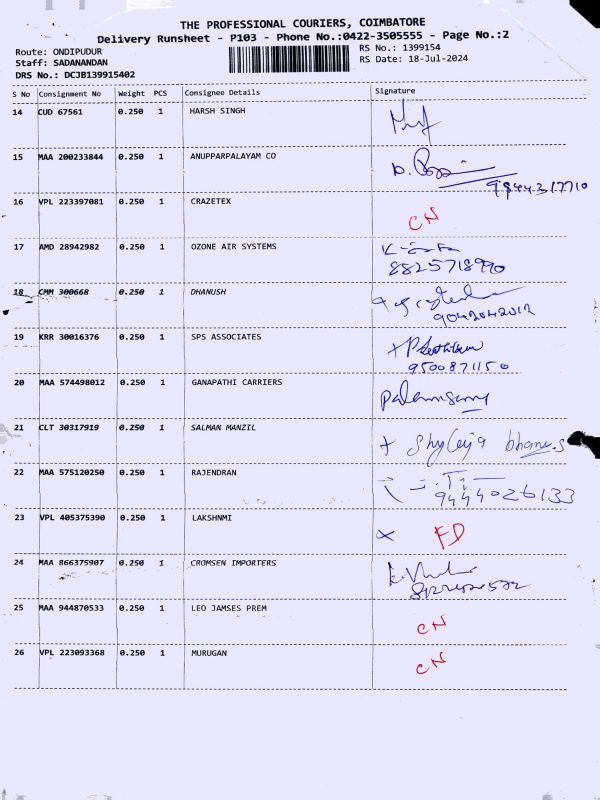 THE PROFESSIONAL COURIERS, COIMBATORE
Delivery Runsheet - P103 - Phone No.:0422-3505555 - Page No.:2
Route: ONDIPUDUR
Staff: SADANANDAN
DRS No.: DCJB139915402
RS No.: 1399154
RS Date: 18-Jul-2024
S No Consignment No Weight PCS Consignee Details Signature
14 CUD 67561 0.250 1 HARSH SINGH
15 MAA 200233844 0.250 1 ANUPPARPALAYAM CO
9844317710
16 VPL 223397081 0.250 1 CRAZETEX CN
17 AMD 28942982 0.250 1 OZONE AIR SYSTEMS
8825718990
18 CMM 300668 0.250 1 DHANUSH
9042042012
19 KRR 30016376 0.250 1 SPS ASSOCIATES
9500871150
20 MAA 574498012 0.250 1 GANAPATHI CARRIERS
21 CLT 30317919 0.250 1 SALMAN MANZIL
22 MAA 575120250 0.250 1 RAJENDRAN
9444026133
23 VPL 405375390 0.250 1 LAKSHNMI x FD
24 MAA 866375907 0.250 1 CROMSEN IMPORTERS
25 MAA 944870533 0.250 1 LEO JAMSES PREM CN
26 VPL 223093368 0.250 1 MURUGAN CN